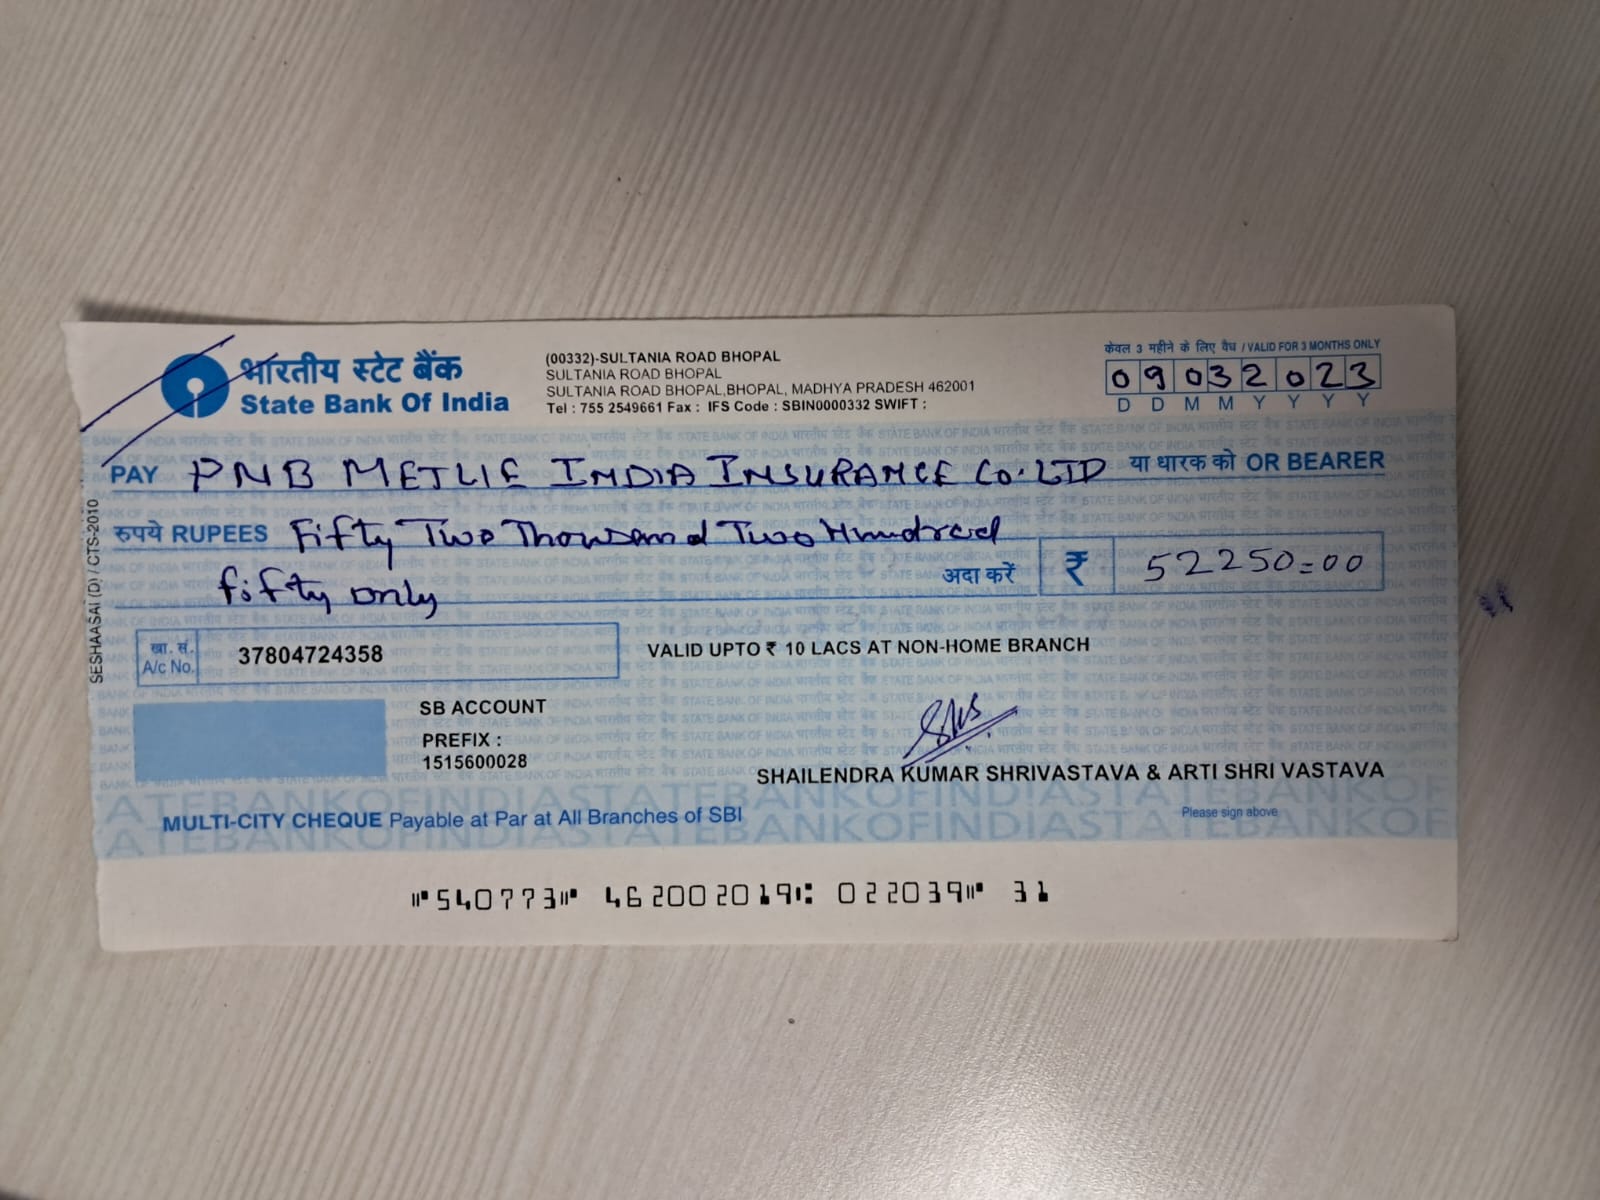 भारतीय स्टेट बैंक
State Bank Of India
(00332)-SULTANIA ROAD BHOPAL
SULTANIA ROAD BHOPAL
SULTANIA ROAD BHOPAL,BHOPAL, MADHYA PRADESH 462001
Tel : 755 2549661 Fax : IFS Code : SBIN0000332 SWIFT :
केवल 3 महीने के लिए वैध / VALID FOR 3 MONTHS ONLY
09032023
D D M M Y Y Y Y
PAY PNB METLIE INDIA INSURANCE CO. LTD या धारक को OR BEARER
रुपये RUPEES Fifty Two Thousand Two Hundred
fifty only अदा करें ₹ 52250=00
खा. सं.
A/c No. 37804724358
VALID UPTO ₹ 10 LACS AT NON-HOME BRANCH
SB ACCOUNT
PREFIX :
1515600028
SHAILENDRA KUMAR SHRIVASTAVA & ARTI SHRI VASTAVA
Please sign above
MULTI-CITY CHEQUE Payable at Par at All Branches of SBI
SESHAASAI (D) / CTS-2010
⑈540773⑈ 462002019⑆ 022039⑈ 31